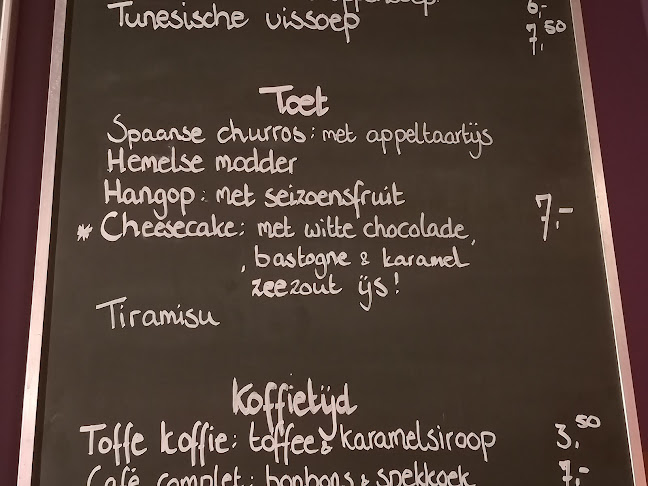 6,-
Tunesische vissoep 7,50
Toet
Spaanse churros: met appeltaartijs
Hemelse modder
Hangop: met seizoensfruit 7,-
* Cheesecake: met witte chocolade,
, bastogne & karamel
zeezout ijs!
Tiramisu
Koffietijd
Toffe koffie: toffee & karamelsiroop 3,50
Café complet: bonbons & spekkoek 7,-